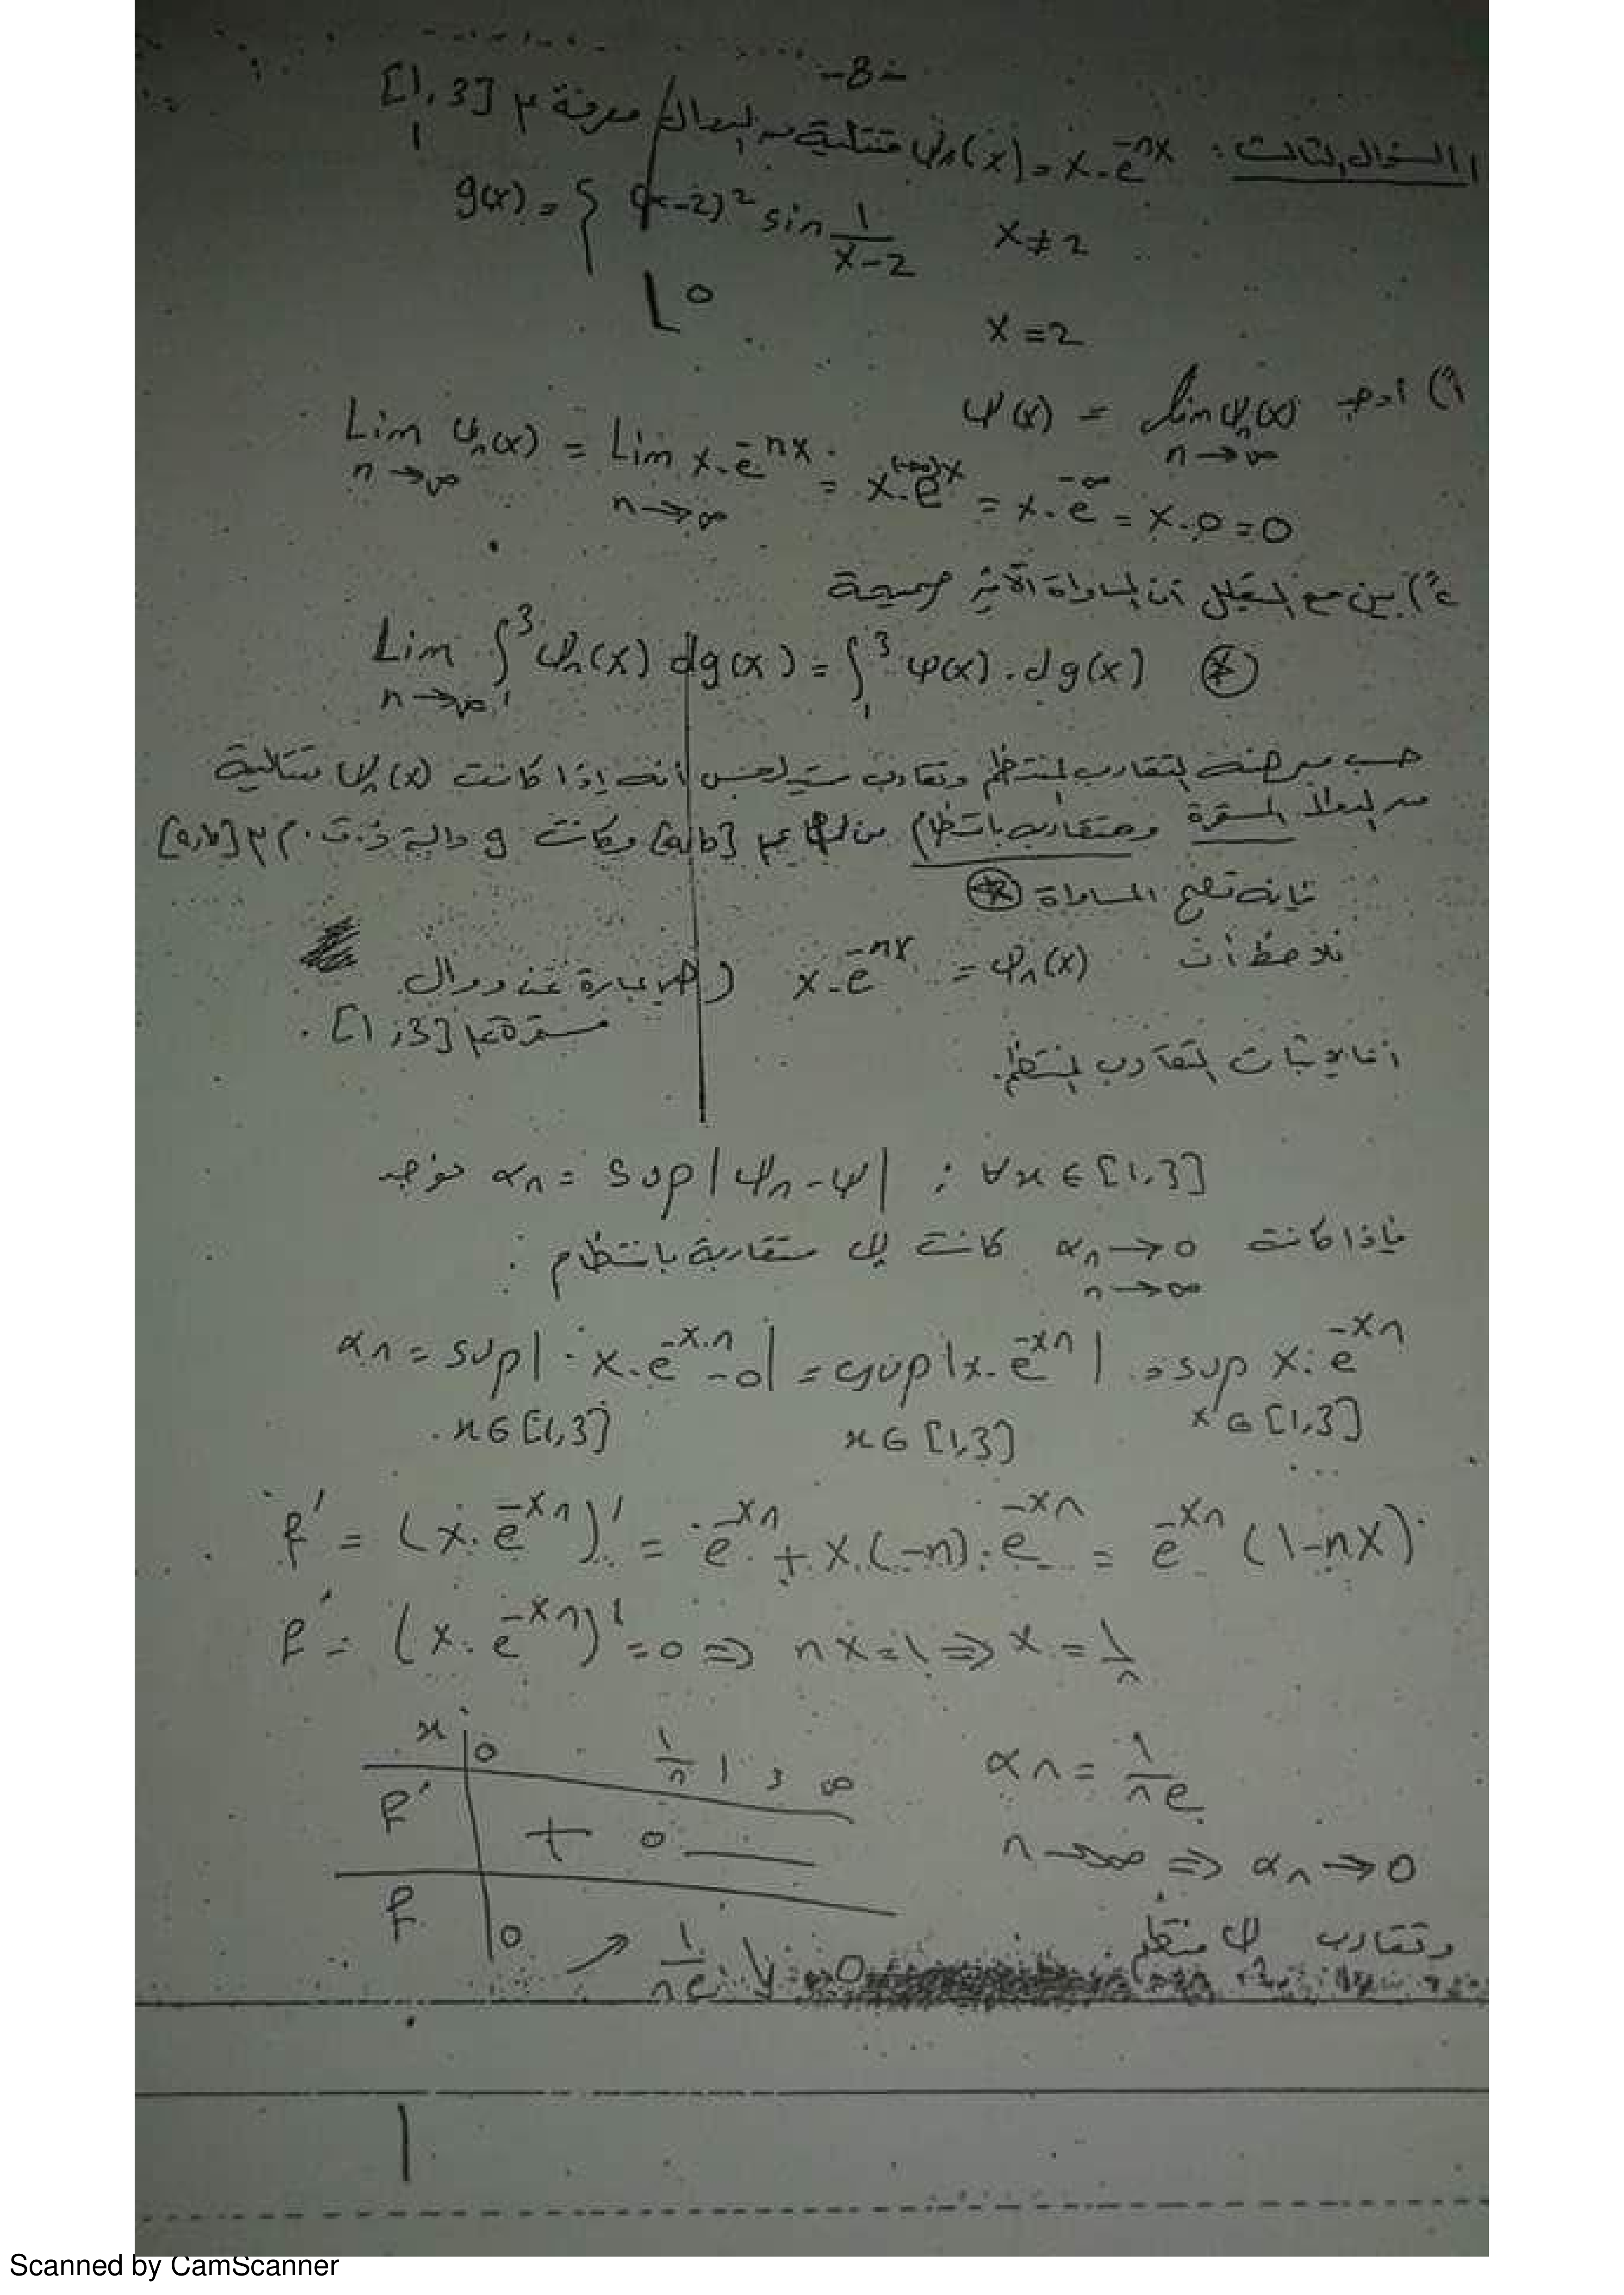 -8-
السؤال الثالث: φₙ(x) = x·e^{-nx} متتالية من الدوال معرفة على [1, 3]
g(x) = { (x-2)² sin 1/(x-2)   x ≠ 2
0   x = 2
1) أوجد φ(x) = lim φₙ(x) n→∞
Lim φₙ(x) n→∞ = Lim x·e^{-nx} n→∞ = x·e^{(-∞)x} = x·e^{-∞} = x·0 = 0
2) بين مع التعليل أن المساواة الآتية صحيحة
Lim n→∞ ∫₁³ φₙ(x) dg(x) = ∫₁³ φ(x)·dg(x) (*)
حسب مبرهنة التقارب المنتظم وتقارب ستيلجس أنه إذا كانت φₙ(x) متتالية
من الدوال المستمرة ومتقاربة بانتظام من φ على [a,b] وكانت g دالية ذ.ت.م على [a,b]
فإنه تصح المساواة (*)
نلاحظ أن φₙ(x) = x·e^{-nx} (هي عبارة عن دوال
مستمرة على [1,3].
أما لإثبات التقارب المنتظم.
نوجد αₙ = sup|φₙ-φ| ; ∀x∈[1,3]
فإذا كانت αₙ→0 n→∞ كانت φₙ متقاربة بانتظام :
αₙ = sup|x·e^{-x·n}-0| = sup|x·e^{-xn}| = sup x·e^{-xn}
x∈[1,3] x∈[1,3] x∈[1,3]
f' = (x·e^{-xn})' = e^{-xn} + x·(-n)·e^{-xn} = e^{-xn}(1-nx)
f' = (x·e^{-xn})' = 0 ⇒ nx=1 ⇒ x = 1/n
x | 0 1/n 1 3 ∞
f' | + 0 —
f | 0 ↗ 1/ne ↘ 0
αₙ = 1/ne
n→∞ ⇒ αₙ→0
وتقارب φₙ منتظم
Scanned by CamScanner